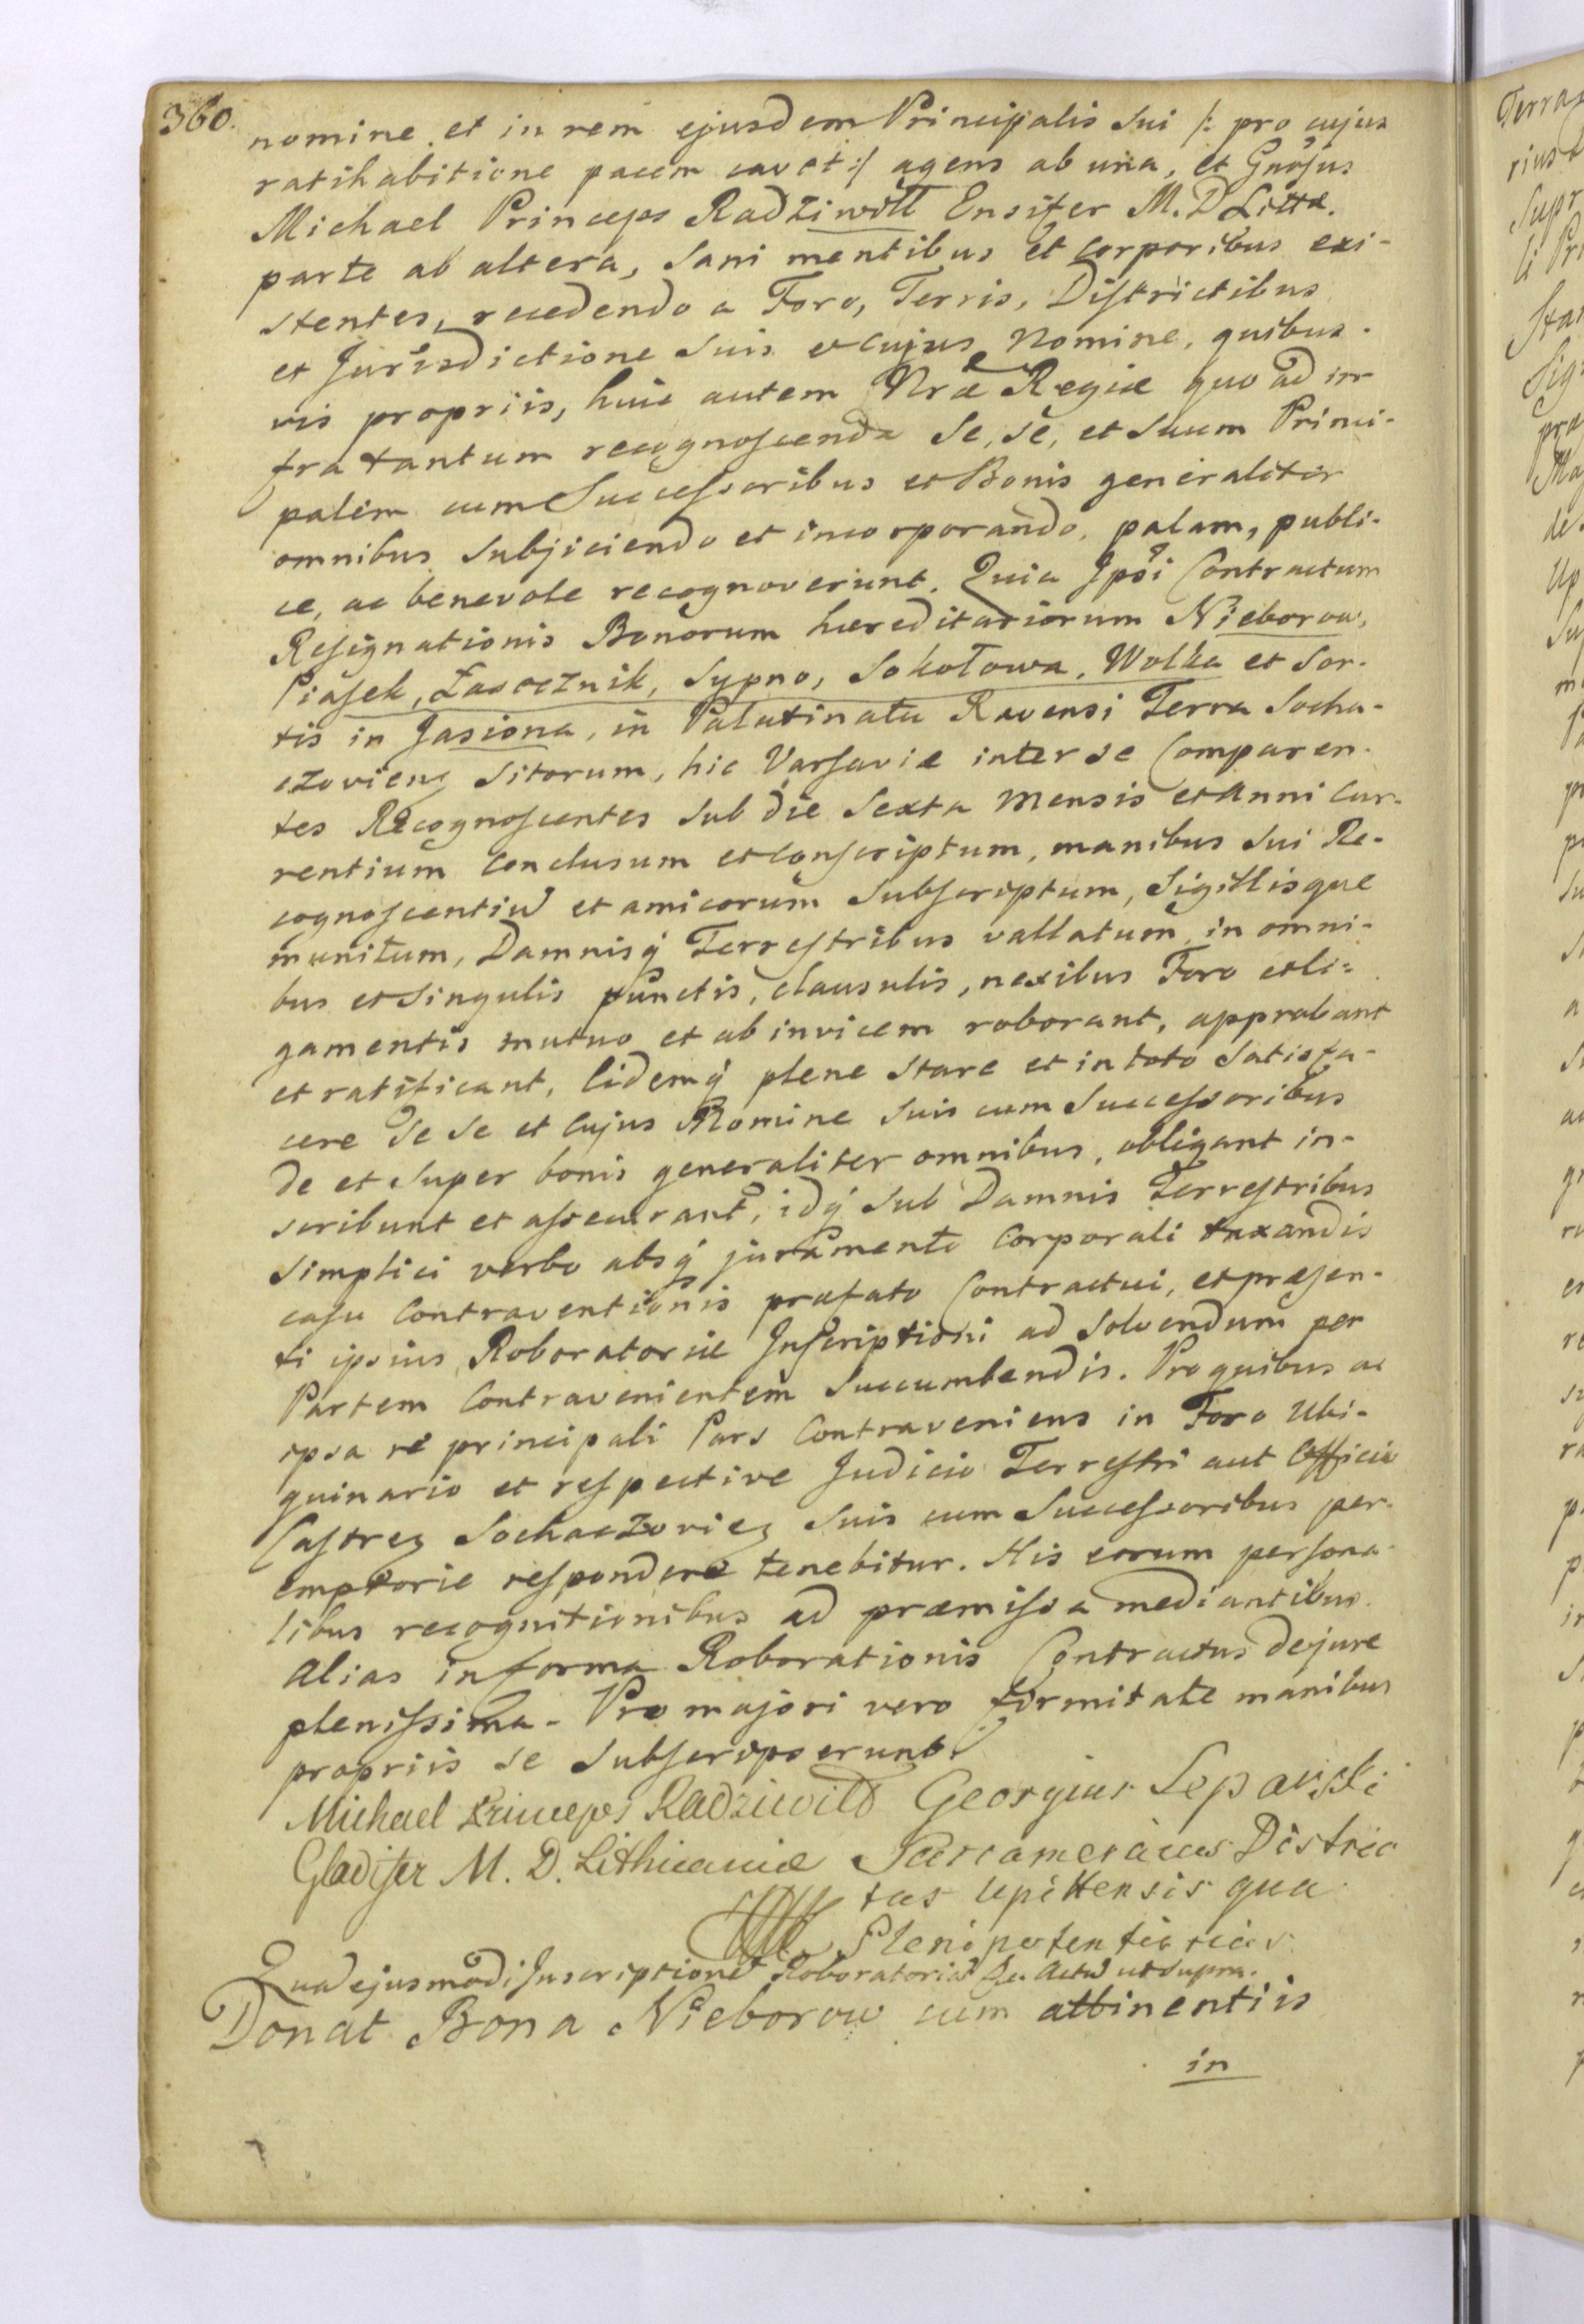 360.
nomine et in rem ejusdem Principalis Sui /: pro cujus
ratihabitione pacem cavet :/ agens ab una, et Gnosus
Michael Princeps Radziwiłł Ensifer M. D Litta.
parte ab altera, Sani mentibus et Corporibus exi-
stentes, recedendo a Foro, Terris, Districtibus
et Jurisdictione Suis et cujus Nomine, quibus-
vis propriis, huic autem Nrae Regiae quo ad in-
fra tantum recognoscenda Se, Se, et Suum Princi-
palem cum Successoribus et Bonis generaliter
omnibus Subjiciendo et incorporando, palam, publi-
ce, ac benevole recognoverunt. Quia Ipsi Contractum
Resignationis Bonorum haereditariorum Nieborow,
Piasek, Zasocznik, Sypno, Sokołowa, Wolka et Sor-
tis in Jasiona, in Palatinatu Ravensi Terra Socha-
czoviens Sitorum, hic Varsaviae inter se Comparen-
tes Recognoscentes Sub die Sexta Mensis et Anni Cur-
rentium Conclusum et Conscriptum, manibus Sui Re-
cognoscentiu et amicorum Subscriptum, Sigillisque
munitum, Damnisq Terrestribus vallatum, in omni-
bus et Singulis punctis, clausulis, nexibus Foro et li-
gamentis mutuo et ab invicem roborant, approbant
et ratificant, Eidemq plene Stare et in toto Satisfa-
cere Se Se et Cujus Nomine Suis cum Successoribus
de et Super bonis generaliter omnibus, obligant in-
scribunt et assecurant, idq Sub Damnis Terrestribus
Simplici verbo absq juramento Corporali taxandis
casu Contraventionis praefato Contractui, et praesen-
ti ipsius Roboratoriae Inscriptioni ad Solvendum per
Partem Contravenientem Succumbendis. Pro quibus ac
ipsa re principali Pars Contraveniens in Foro Ubi-
quinario et respective Judicio Terrestri aut Officio
Castren Sochaczovien Suis cum Successoribus per-
emptorie respondere tenebitur. His eorum persona-
libus recognitionibus ad praemissa mediantibus.
Alias in forma Roborationis Contractus de jure
plenissima. Pro majori vero firmitate manibus
propriis se Subscripserunt.
Michael Princeps Radziwill Georgius
Gladifer M. D. Lithuaniae Succamerarius Distric
tus Upittensis qua
Plenipotentiarius
Quad ejusmodi Inscriptione Roboratoria Actu ut supra.
Donat Bona Nieborow cum attinentiis
in